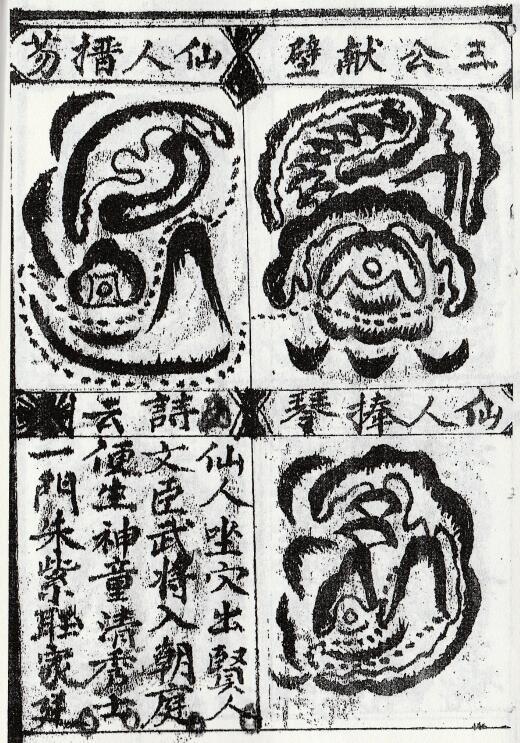 三公献壁
仙人搢芴
仙人捧琴
詩云
仙人坐穴出賢人
文臣武将入朝庭
便生神童清秀士
一門朱紫家